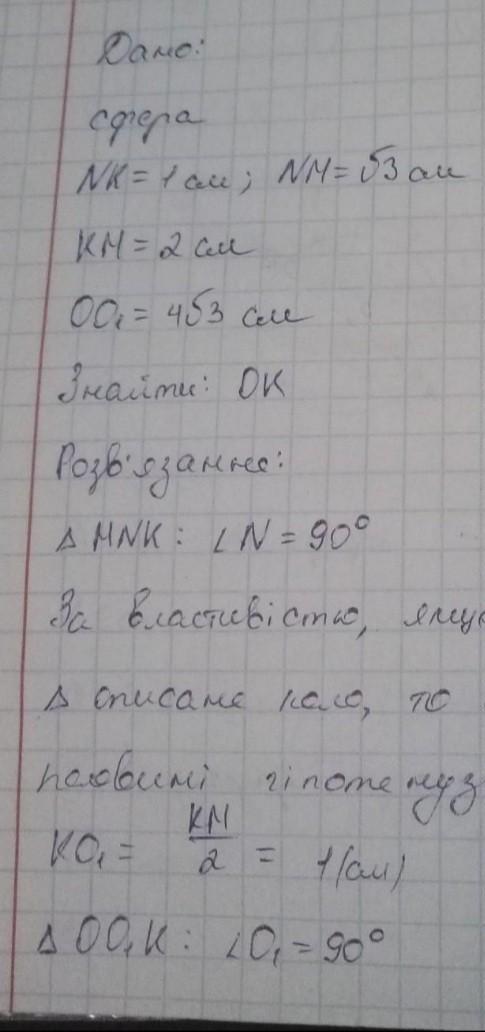 Дано:
сфера
NK = 1 см; NM = √3 см
KM = 2 см
OO₁ = 4√3 см
Знайти: OK
Розв'язання:
△ MNK: ∠N = 90°
За властивістю, якщо
△ описане коло, то
половині гіпотенуз
KO₁ = KM/2 = 1(см)
△ OO₁K: ∠O₁ = 90°